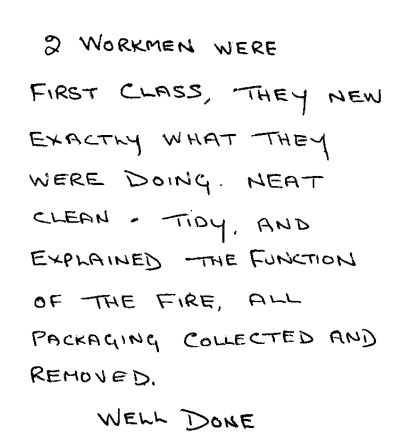 2 WORKMEN WERE
FIRST CLASS, THEY NEW
EXACTLY WHAT THEY
WERE DOING. NEAT
CLEAN - TIDY, AND
EXPLAINED THE FUNCTION
OF THE FIRE, ALL
PACKAGING COLLECTED AND
REMOVED.
WELL DONE